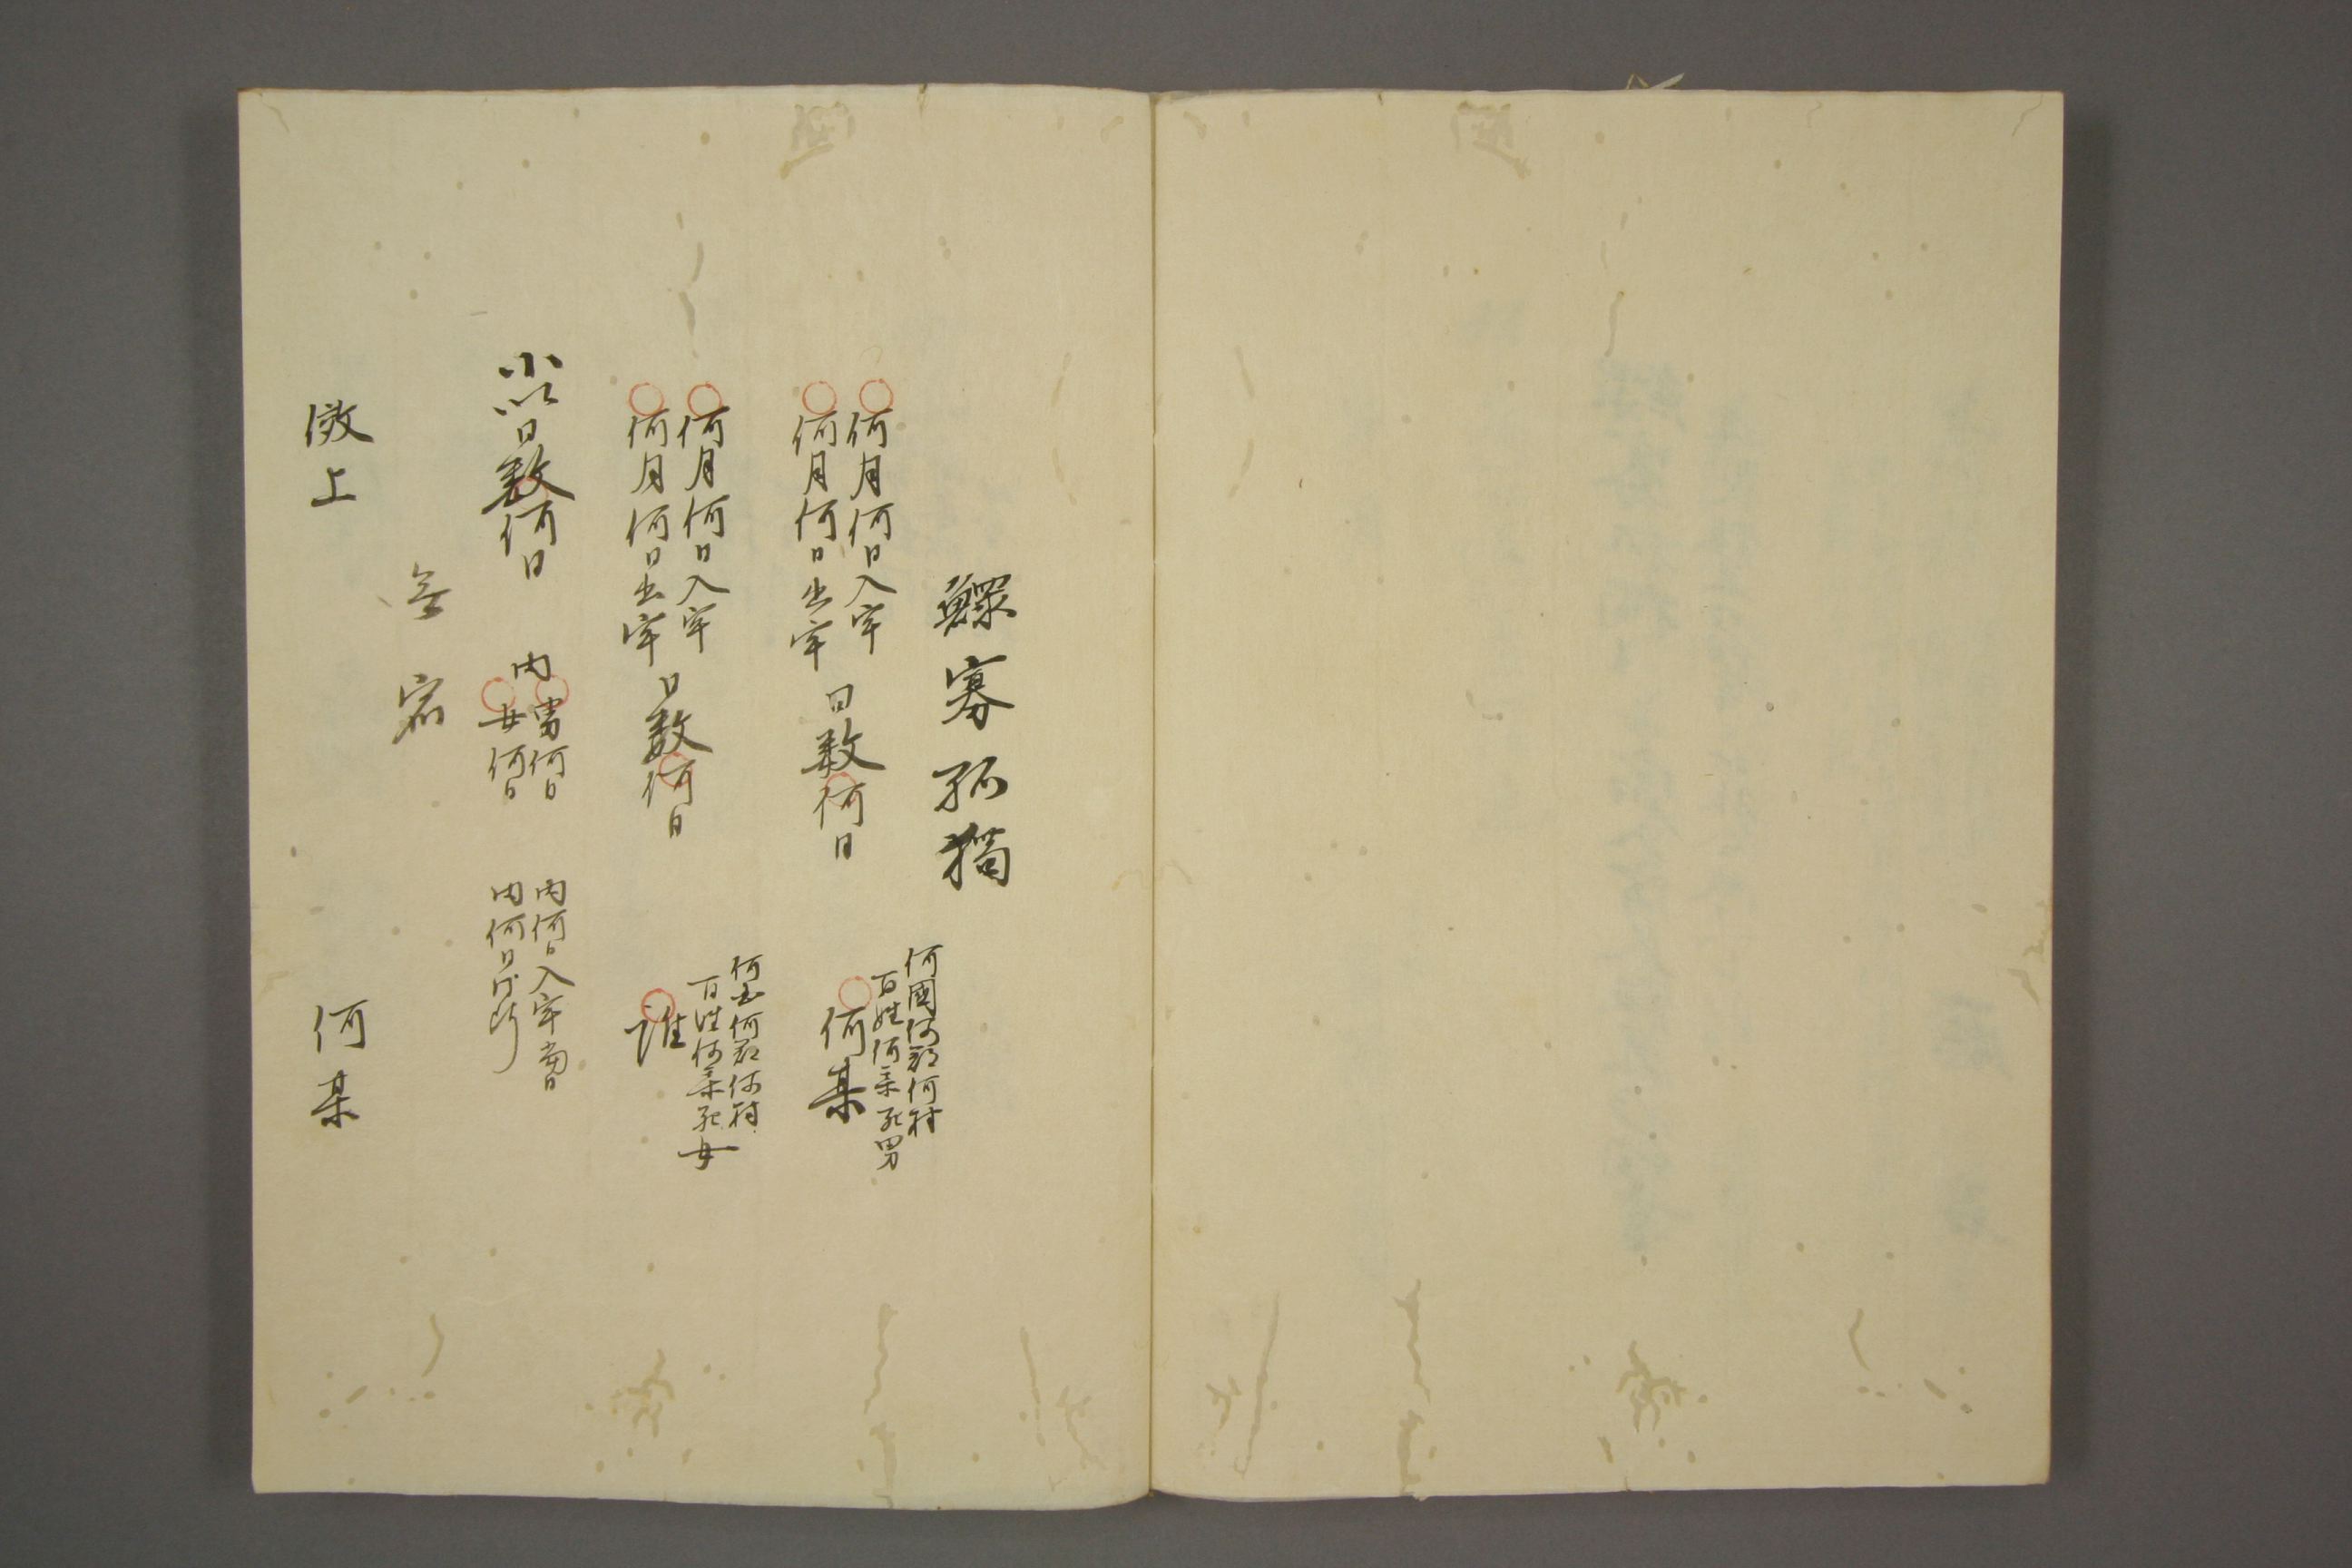 鰥寡孤獨
何國何郡何村
百姓何某死男
何月何日入牢
何月何日出牢
日数何日
何某
何国何郡何村
百姓何某死女
何月何日入牢
何月何日出牢
日数何日
誰
小以日数何日
内
男何日
女何日
内何日入牢当日
内何日
無宿
倣上
何某